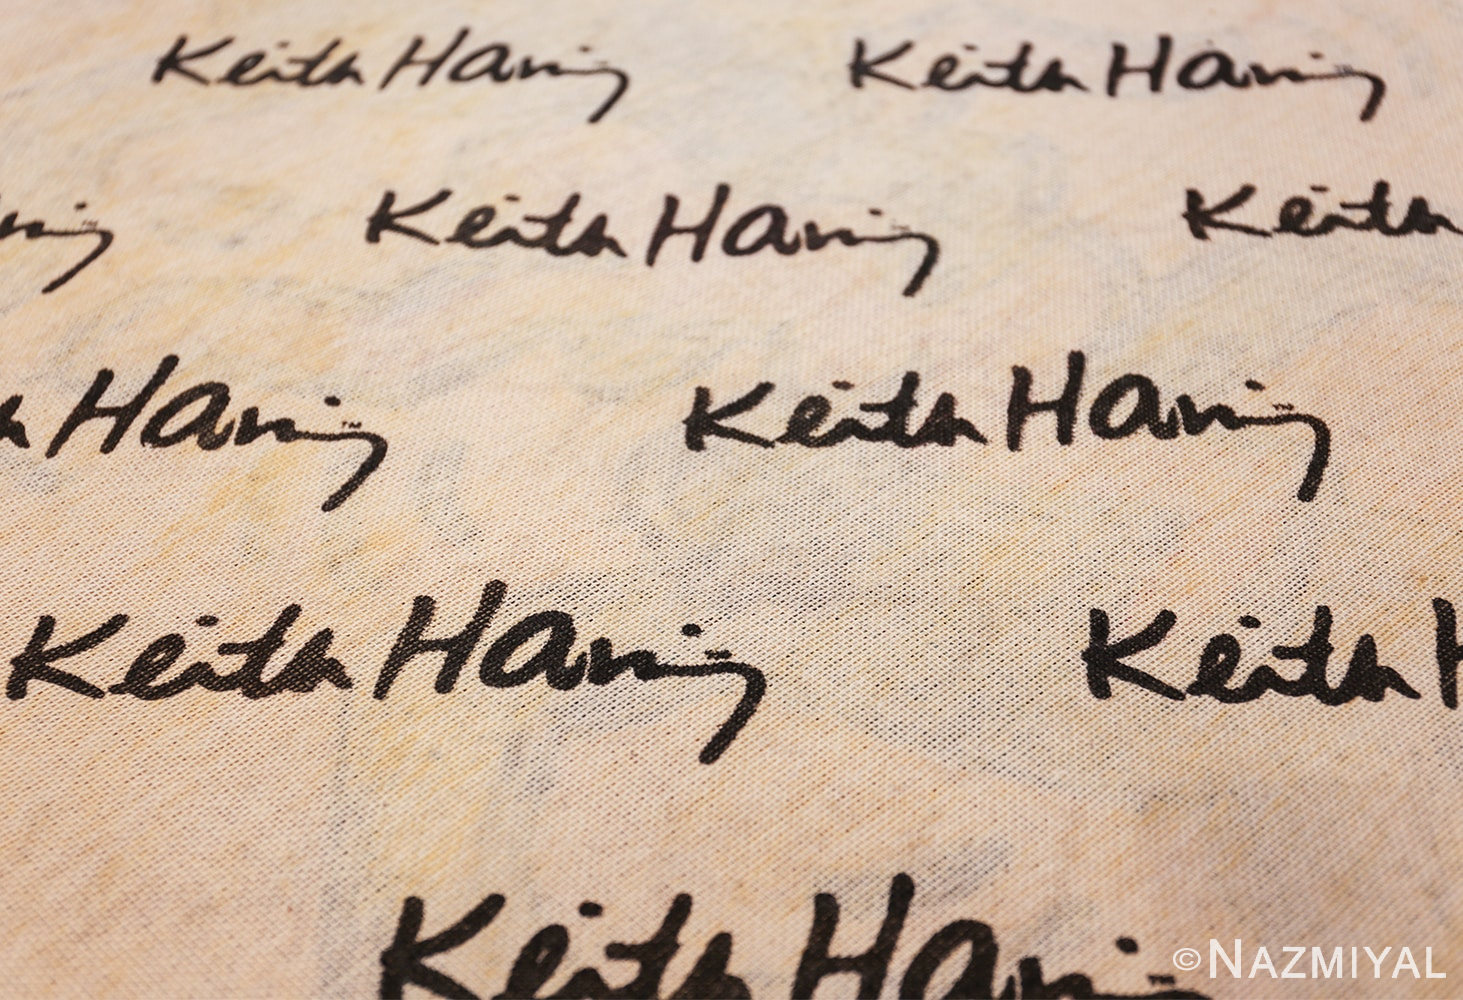 Keith Haring Keith Haring
ring Keith Haring Keith
h Haring ™ Keith Haring ™
Keith Haring Keith H
Keith Harin
©NAZMIYAL